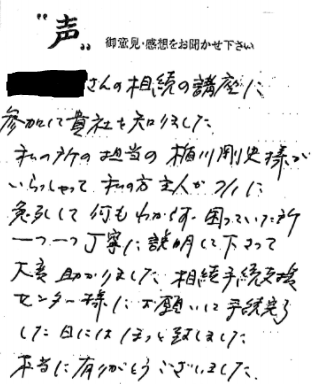 "声" 御意見・感想をお聞かせ下さい
さんの相続の講座に
参加して貴社を知りました
私の所の担当の 楯川剛史様が
いらっしゃって 私の方主人が 7/1に
急死して 何もわからず 困っていた所
一つ一つ丁寧に説明して下さって
大変助かりました 相続手続支援
センター様に お願いして手続完了
した日には ほっと致しました
本当に有りがとうございました